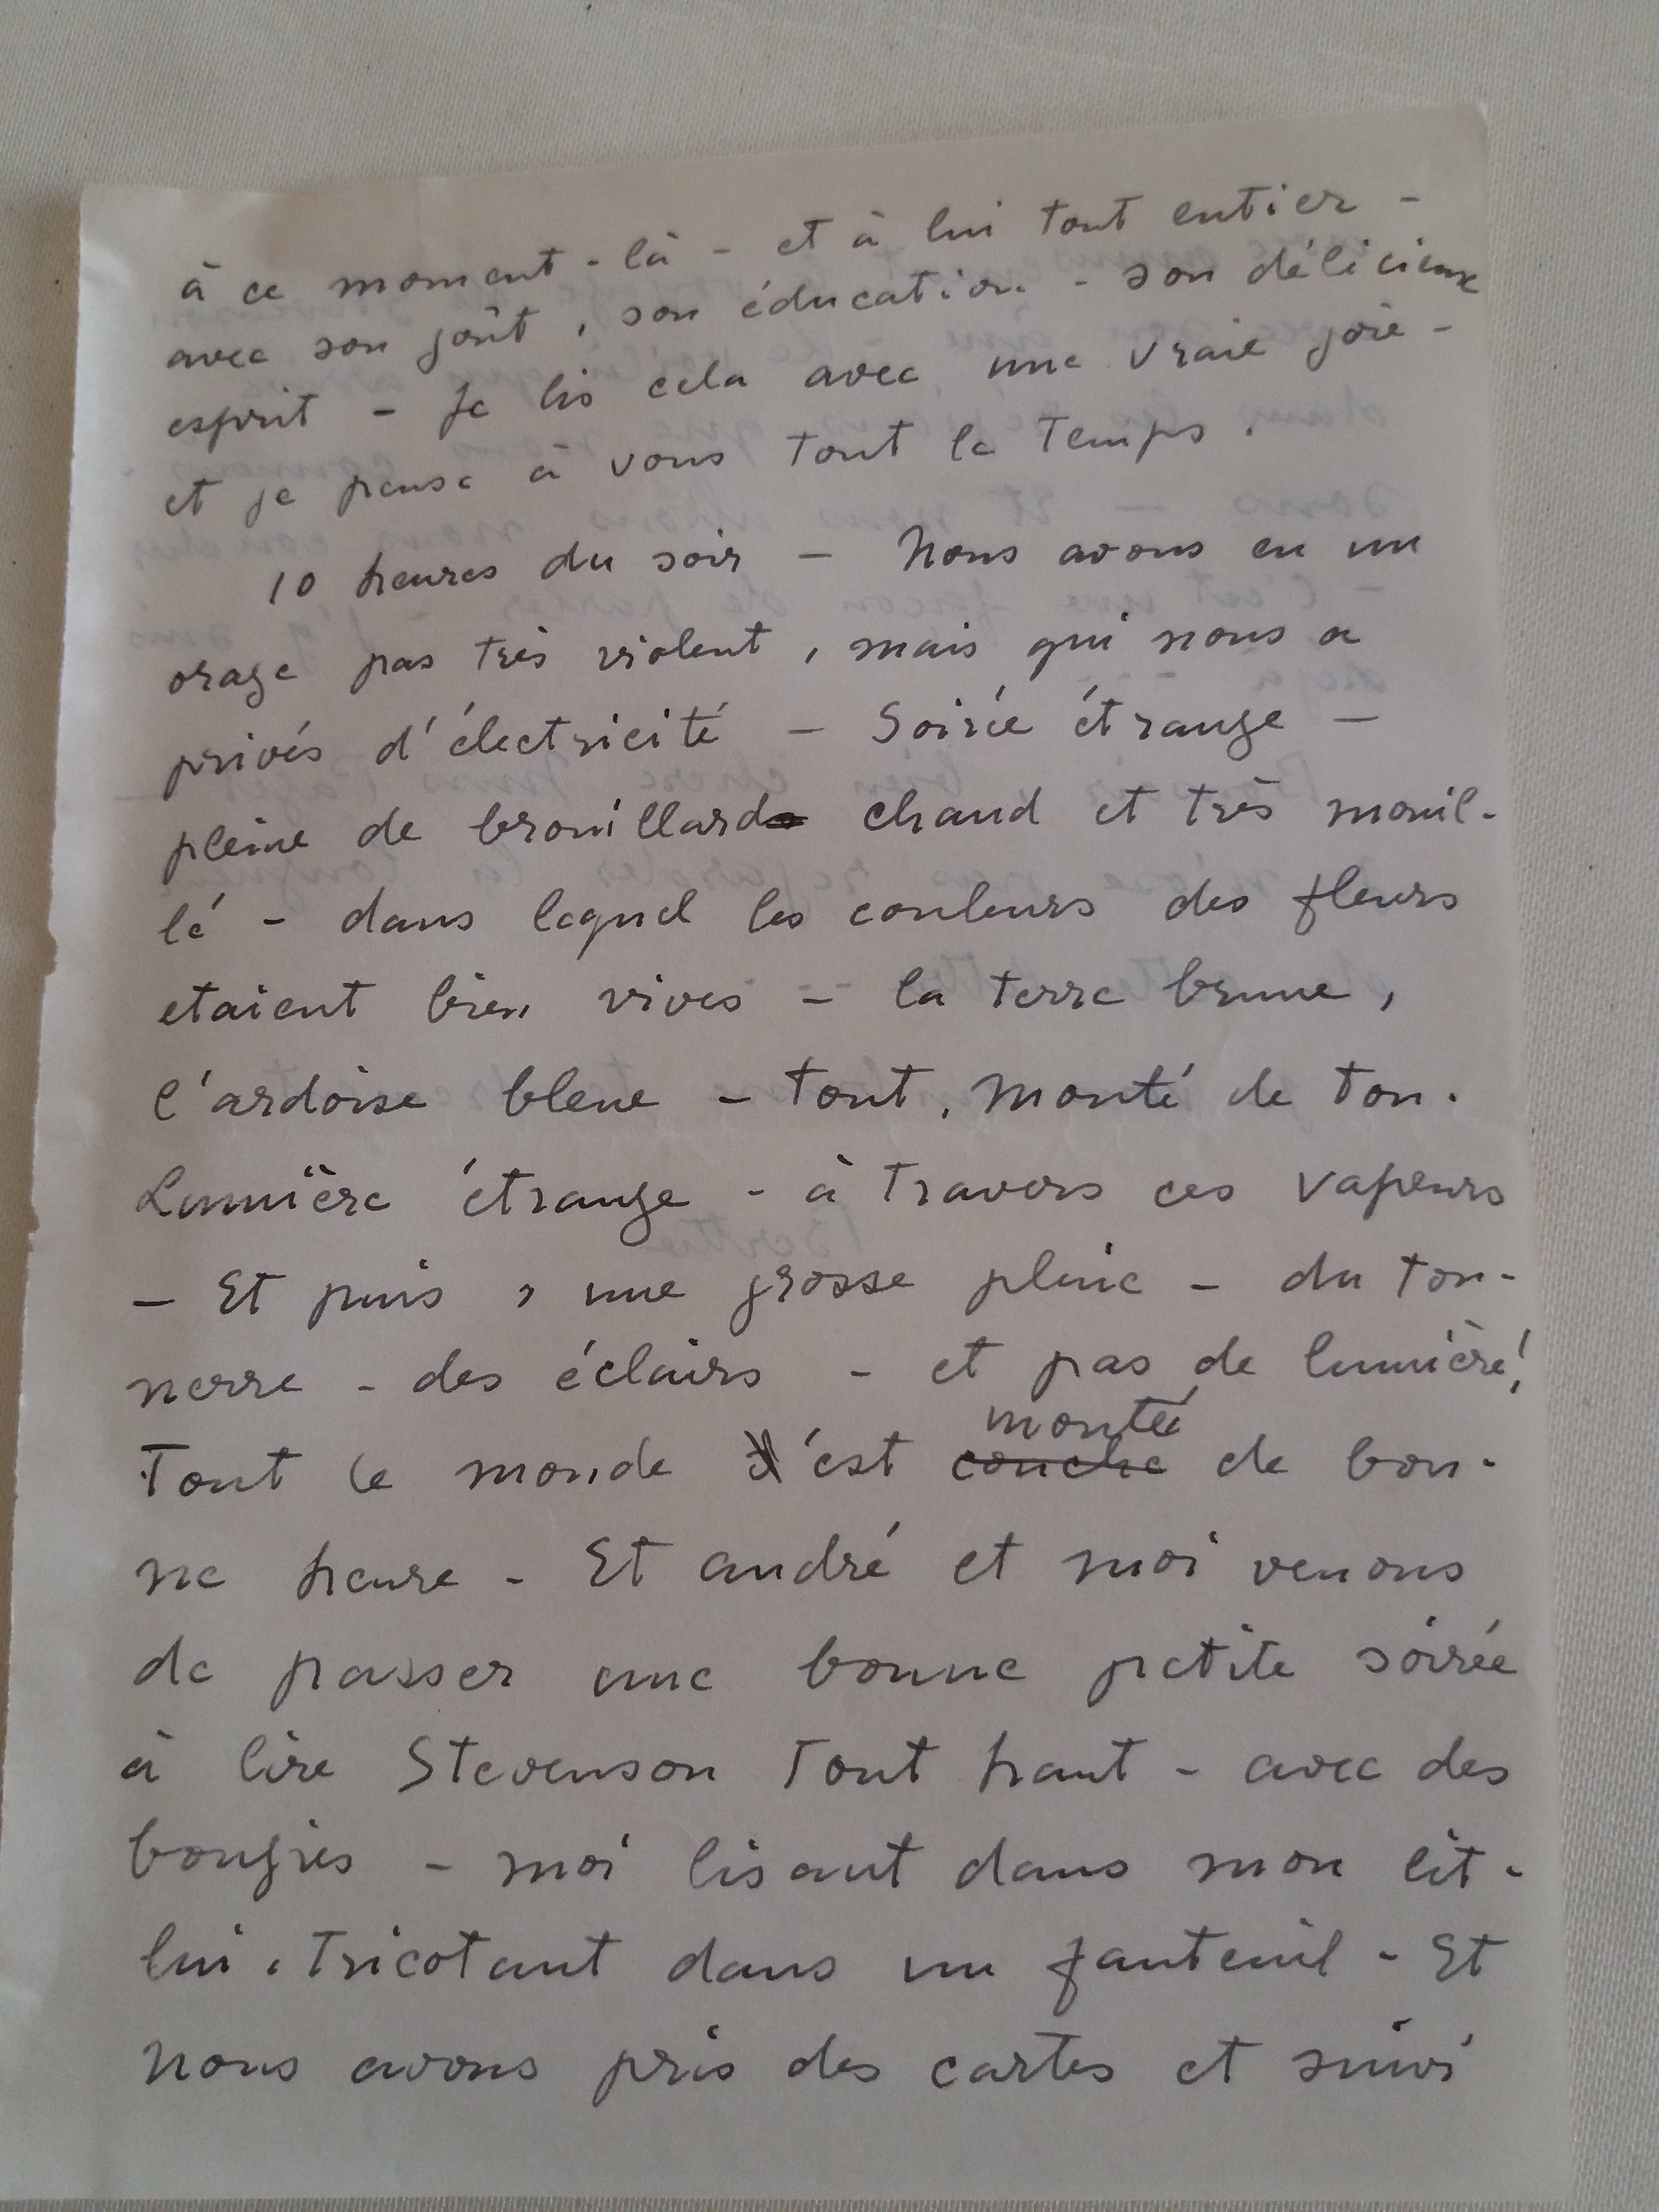 à ce moment-là - et à lui tout entier -
avec son goût, son éducation - son délicieux
esprit - Je lis cela avec une vraie joie -
et je pense à vous tout le temps.
10 heures du soir - Nous avons eu un
orage pas très violent, mais qui nous a
privés d'électricité - Soirée étrange -
pleine de brouillard chaud et très mouil-
lé - dans lequel les couleurs des fleurs
etaient bien vives - la terre brune,
l'ardoise bleue - tout, monté de ton.
Lumière étrange - à travers ces vapeurs
- Et puis, une grosse pluie - du ton-
nerre - des éclairs - et pas de lumière!
Tout le monde est couche monté de bon-
ne heure - Et andré et moi venons
de passer une bonne petite soirée
à lire Stevenson tout haut - avec des
bougies - moi lisant dans mon lit -
lui, tricotant dans un fauteuil - Et
nous avons pris des cartes et suivi